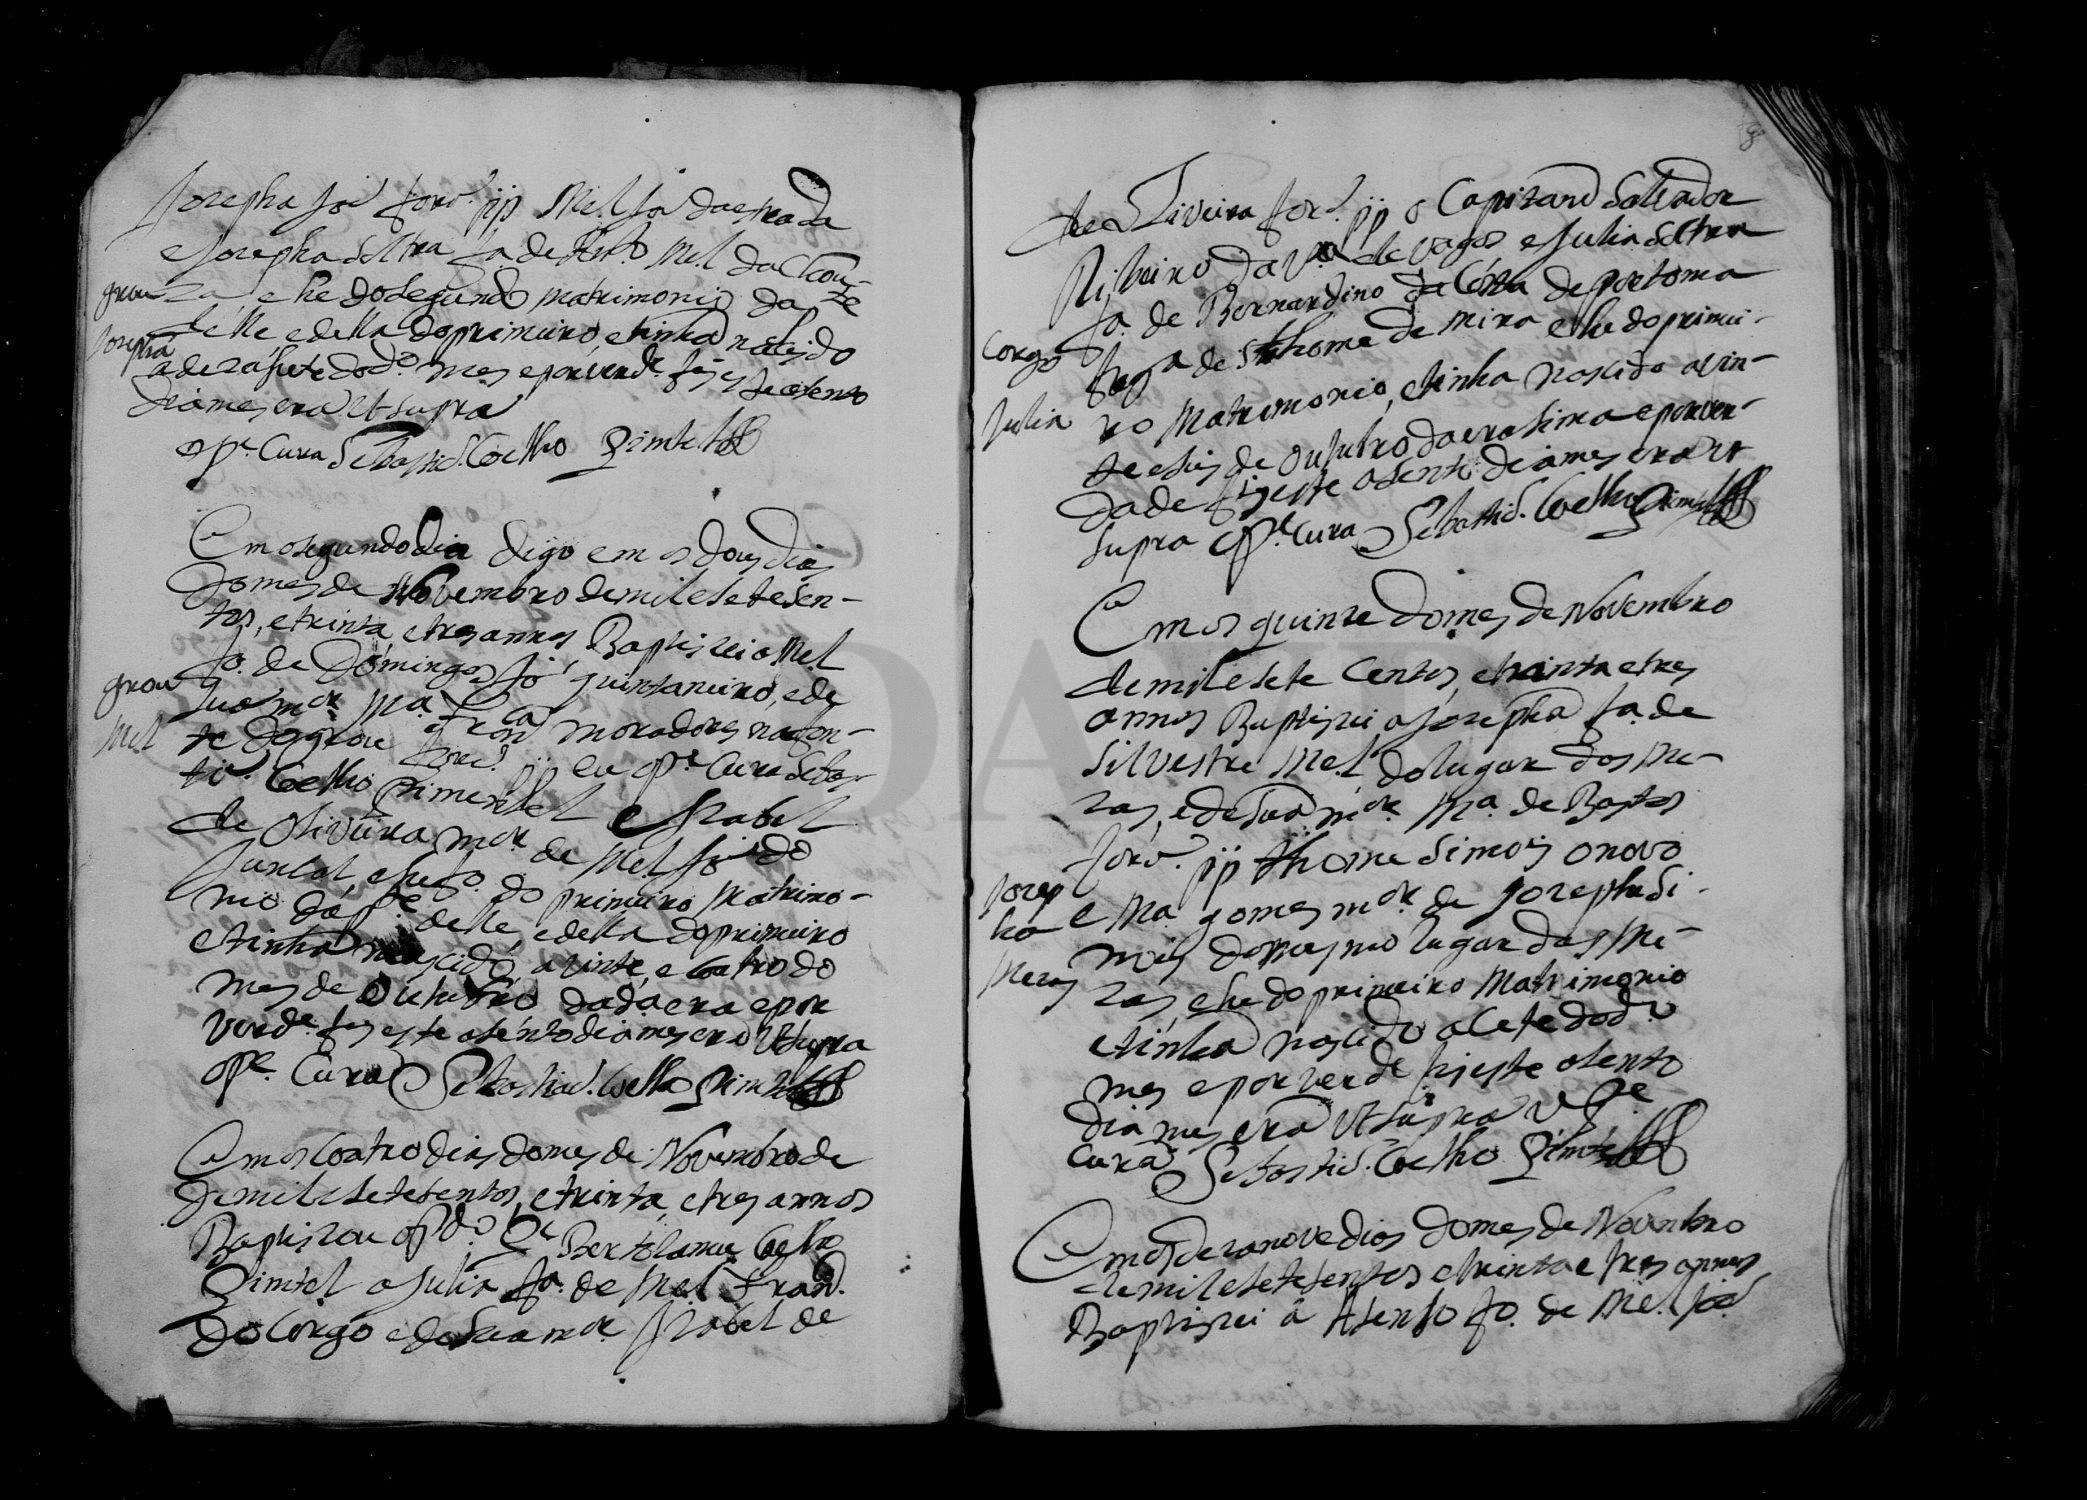 Josepha João forão pp Mel João da estrada
e Josepha Soltra fa. de Anto Mel da Cheou-
za e he do segundo matrimonio da pte
delle e della do primeiro, e tinha nascido
a dezasete do do. mes e por verde. fis este asento
dia mes era Ut supra
o Pe. Cura Sebastião Coelho Pimtel
grou
Josepha
Em o segundo dia digo em os dous dias
do mes de Novembro de mil e sete sen-
tos, e trinta, e tres annos Baptizei o Mel
fo. de Domingos João quintaneiro, e de
sua mer. Ma. Fran.ca moradores na fon-
te do grou forão pp eu o Pe. Cura Sebas-
tião Coelho Pimentel e Izabel
de Oliveira mer. de Mel João do
Juncal, e he fo. do primeiro Matrimo-
nio da pte. delle, e della do primeiro
e tinha nascido, a vinte, e Coatro do
mes de Outubro da da era e por
verde. fis este asento dia mes era Ut supra
o Pe. Cura Sebastião Coelho Pimtel
grou
Mel
Em os Coatro dias do mes de Novembro de
de mil e sete sentos, e trinta, e tres annos
Baptizou o Pe. Bertolameu Coelho
Pimtel a Julia fa. de Mel Fran.
do Corgo e de sua mer. Izabel de
DAV
de Oliveira forão pp o Capitam Salvador
Ribeiro da Va. de Vagos e Julia Soltra
fa. de Bernardino da Costa de portoma
fregᵃ de S. thome de Mira e he do primei-
ro Matrimonio, e tinha nascido a vin-
te e seis de Outubro da era asima e por ver-
dade fis este asento dia mes era Ut
supra o Pe. Cura Sebastião Coelho Pimtel
Corgo
Julia
Em os quinze do mes de Novembro
de mil e sete Centos, e trinta e tres
annos Baptizei a Josepha fa. de
Silvestre Mel do lugar dos Me-
zas, e de sua mer. Ma. de Bastos
forão pp thome Simois o novo
e Ma gomes mer. de Joseph Si-
mois do mesmo lugar das Me-
zas e he do primeiro Matrimonio
e tinha nascido a Cete do do
mes e por verde fis este asento
dia mes era Ut supra o Pe
Cura Sebastião Coelho Pimtel
Josep
ha
Mezas
Em os dezanove dias do mes de Novembro
de mil e sete sentos e trinta e tres annos
Baptizei a Asenso fo. de Mel João